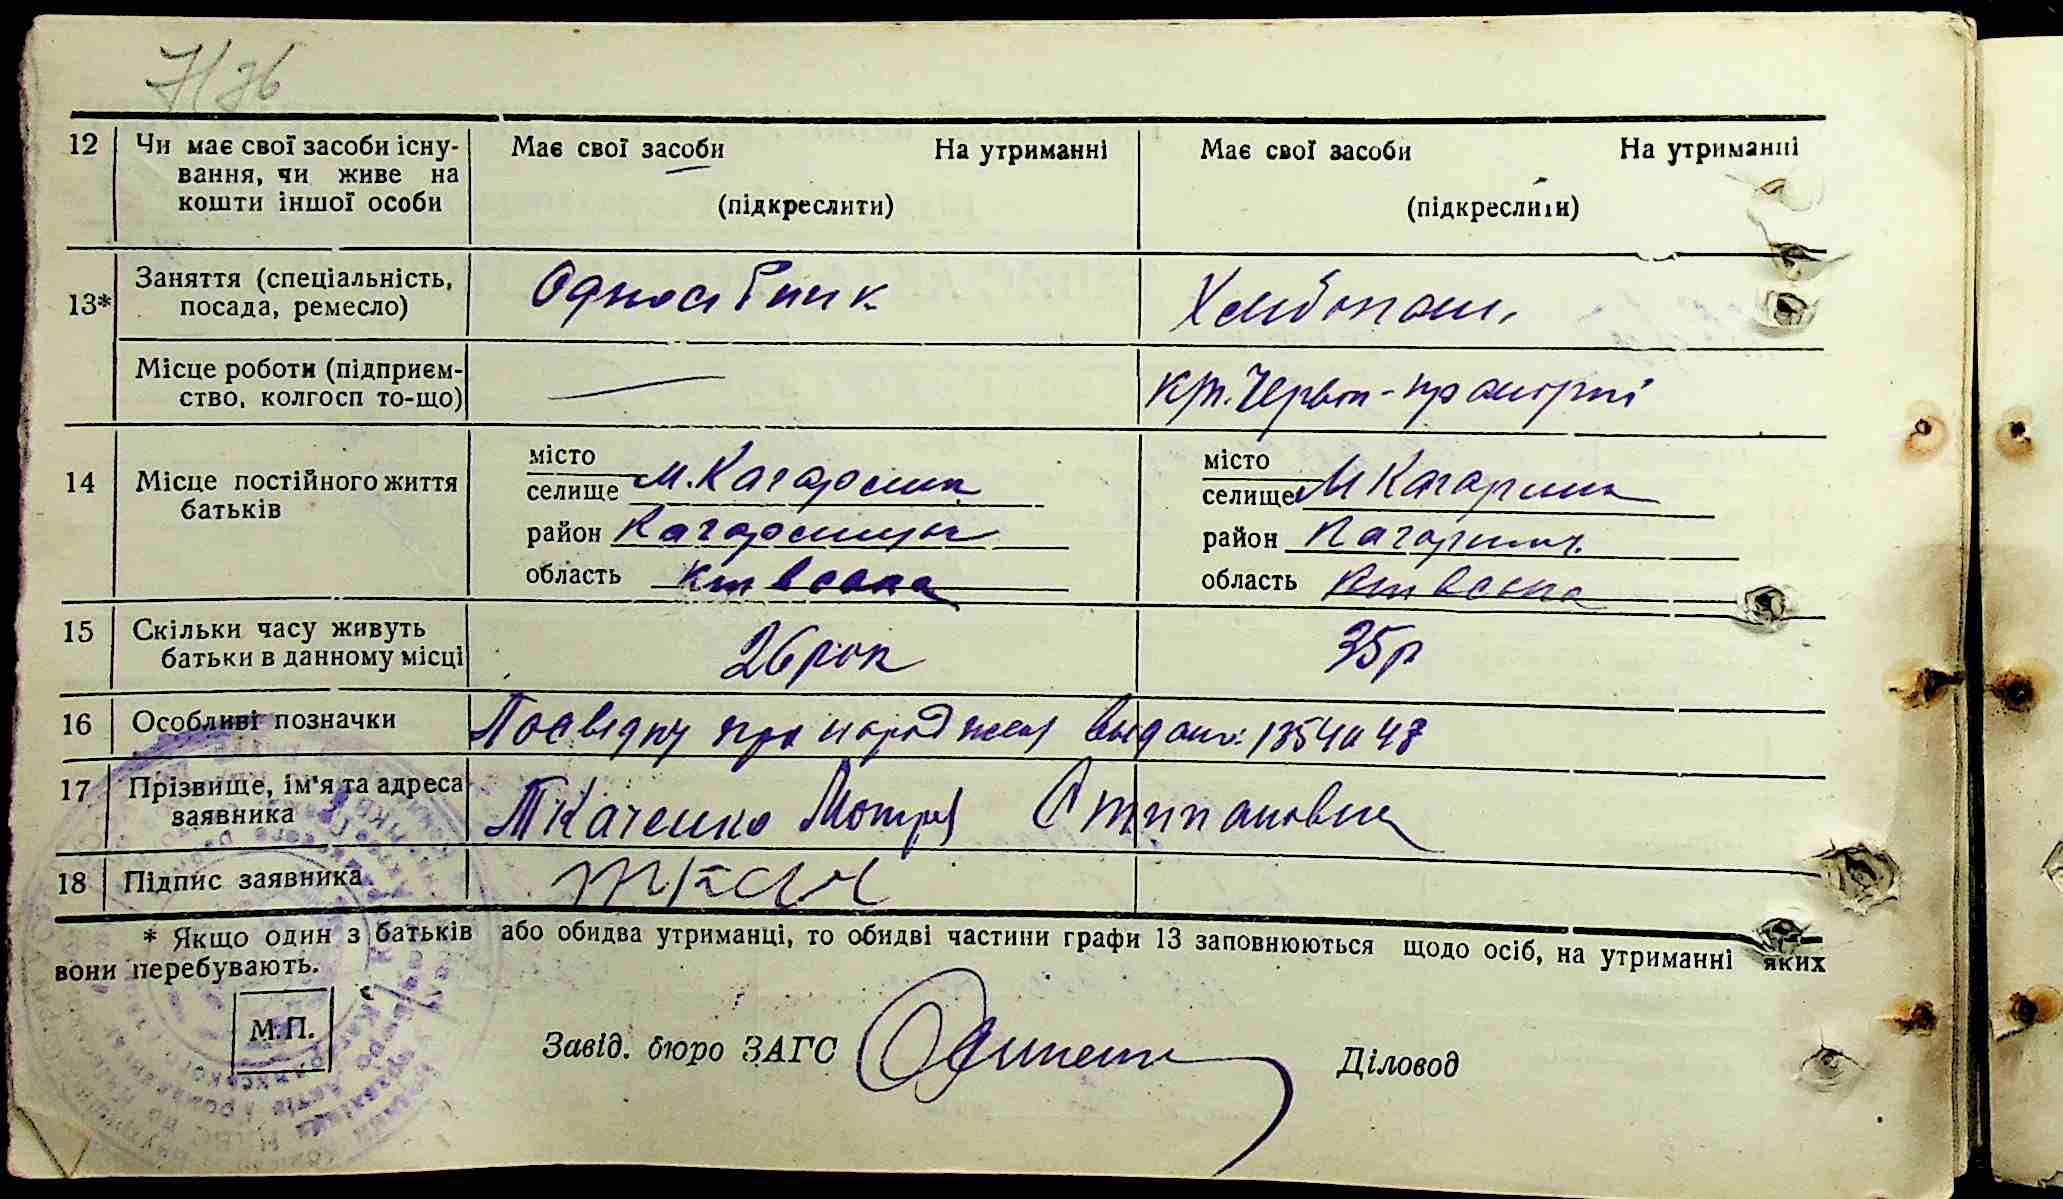 7/36
12 Чи має свої засоби існу- Має свої засоби На утриманні Має свої засоби На утриманні
вання, чи живе на
кошти іншої особи (підкреслити) (підкреслити)
13* Заняття (спеціальність, Хлібопаш.
посада, ремесло)
Місце роботи (підприєм- Черв
ство, колгосп то-що)
14 Місце постійного життя місто м. Кагарлик місто м Кагарлик
батьків селище селище
район Кагарлицьк район Кагарлиц.
область Київська область Київська
15 Скільки часу живуть 26 рок 35 р
батьки в данному місці
16 Особливі позначки Посвідку про народжен видано: 1354048
17 Прізвище, ім'я та адреса Ткаченко Мотря Степановна
заявника
18 Підпис заявника Ткач
* Якщо один з батьків або обидва утриманці, то обидві частини графи 13 заповнюються щодо осіб, на утриманні яких
вони перебувають.
М.П.
Завід. бюро ЗАГС Діловод